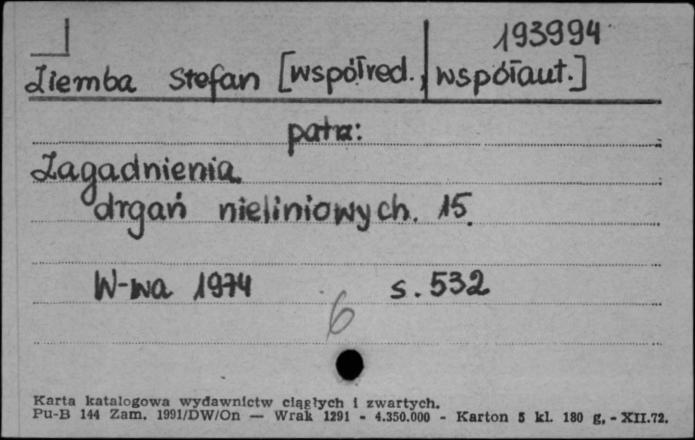 193994
Ziemba Stefan [współred., współaut.]
patrz:
Zagadnienia
drgań nieliniowych. 15.
W-wa 1974 s. 532
6
Karta katalogowa wydawnictw ciągłych i zwartych.
Pu-B 144 Zam. 1991/DW/On — Wrak 1291 - 4.350.000 - Karton 5 kl. 180 g. - XII.72.